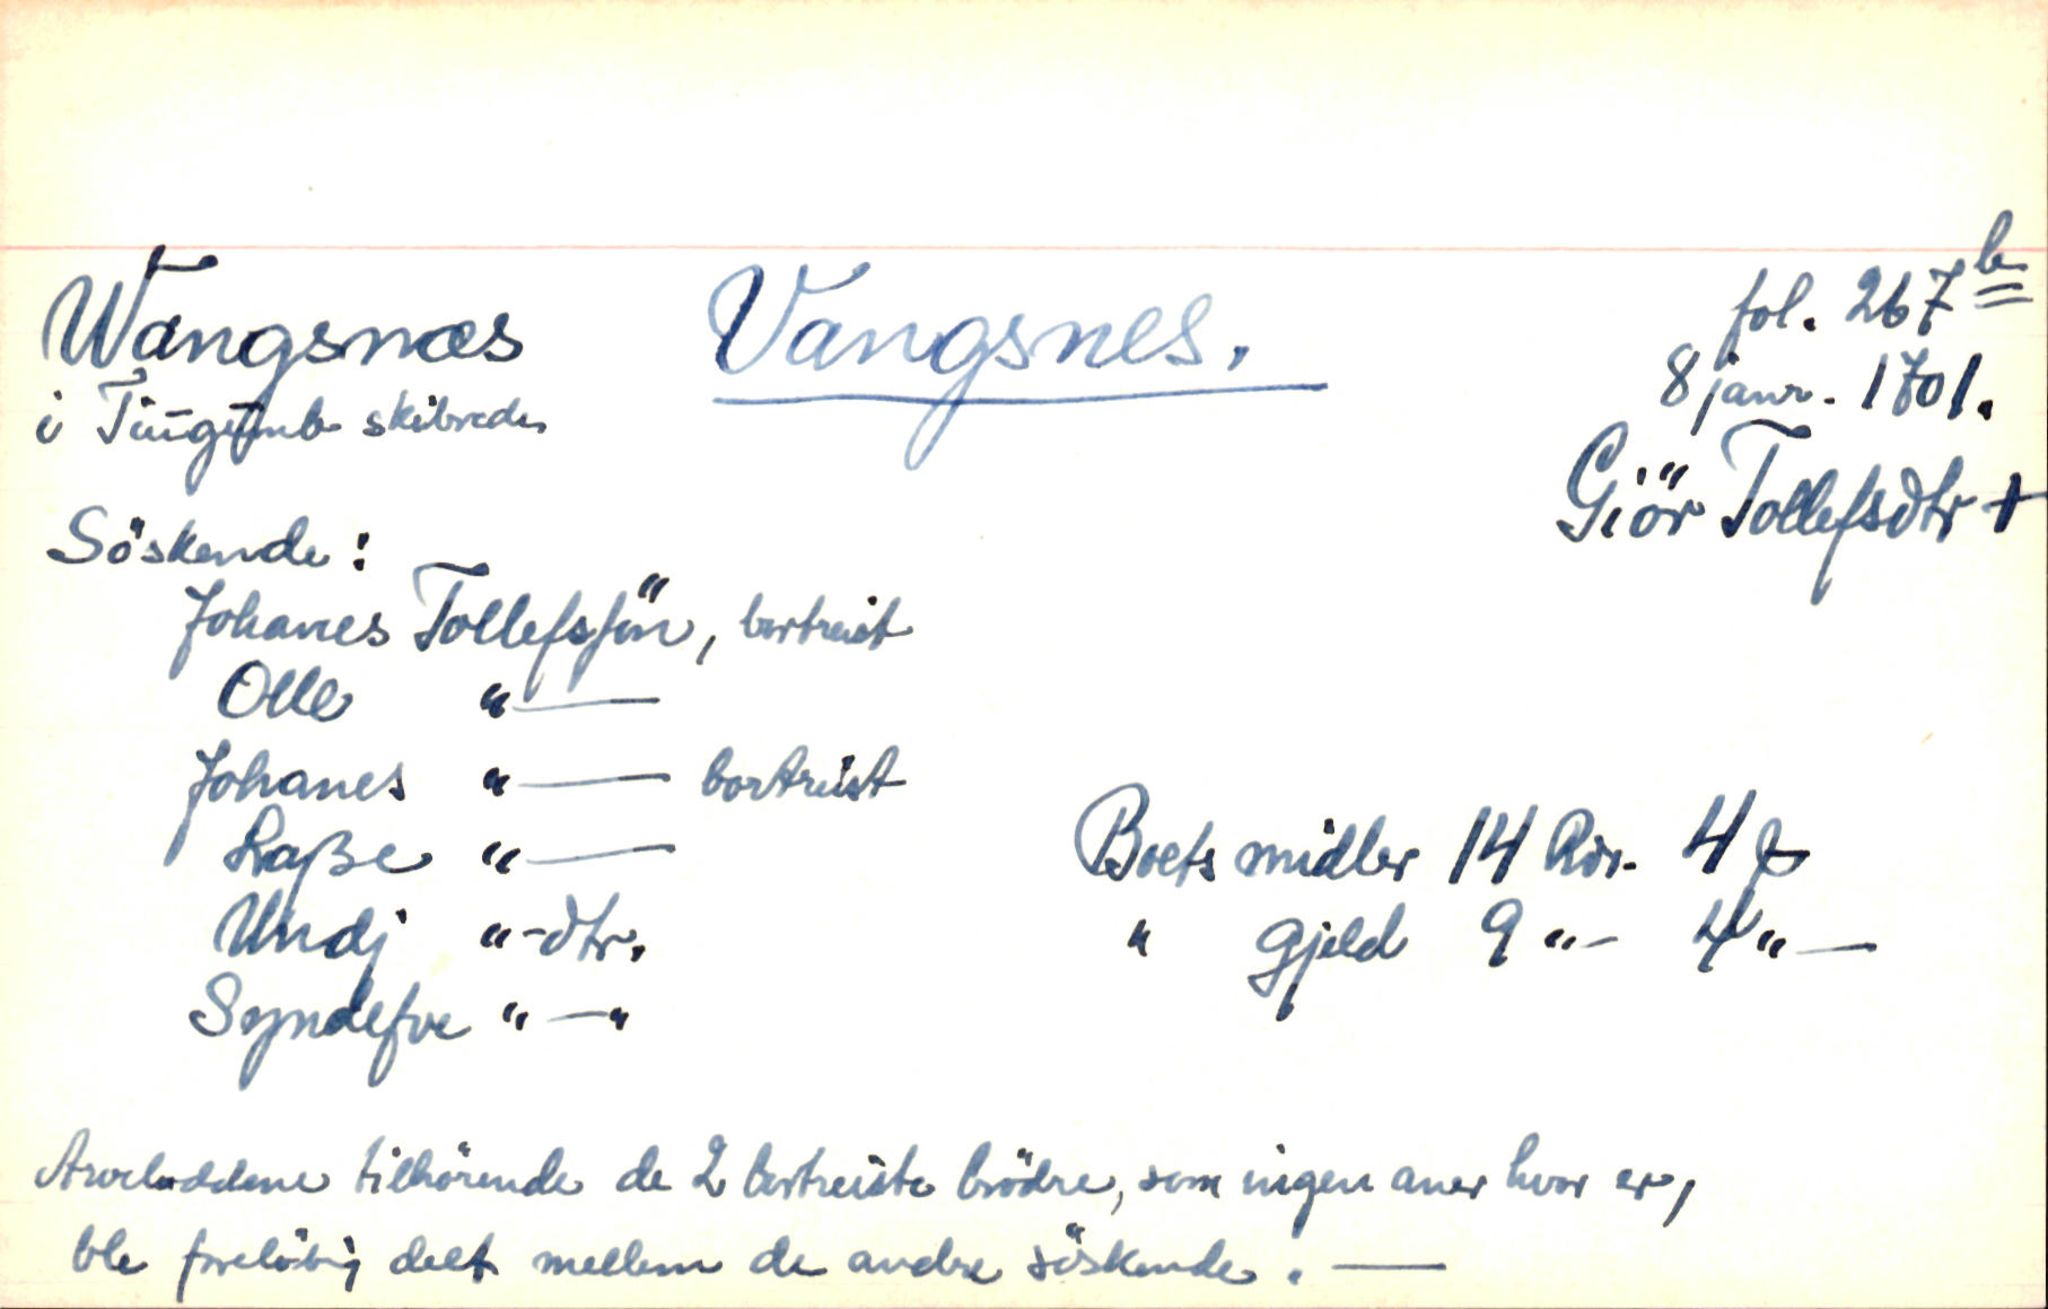 Wangsnæs Vangsnes. fol. 267b
i Tiugumb skibrede 8 janr. 1701.
Giör Tollefsdtr +
Söskende:
Johanes Tollefssön, bortreist
Olle "—
Johanes "— bortreist
Lasse "—
Undj "-dtr.
Syndefve "—"
Boets midler 14 Rdr. 4 ß
" gjeld 9 "- 4 "—
Arveloddene tilhörende de 2 bortreiste brödre, som ingen aner hvor er,
ble forelöbig delt mellem de andre söskende. —